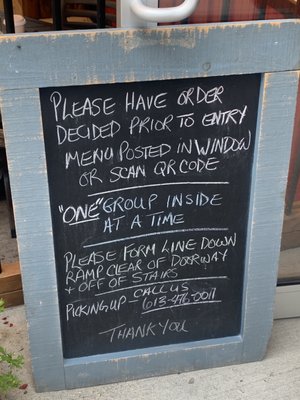 PLEASE HAVE ORDER
DECIDED PRIOR TO ENTRY
MENU POSTED IN WINDOW
OR SCAN QR CODE
"ONE" GROUP INSIDE
AT A TIME
PLEASE FORM LINE DOWN
RAMP CLEAR OF DOORWAY
+ OFF OF STAIRS
PICKING UP CALL US
613-476-0011
THANK YOU